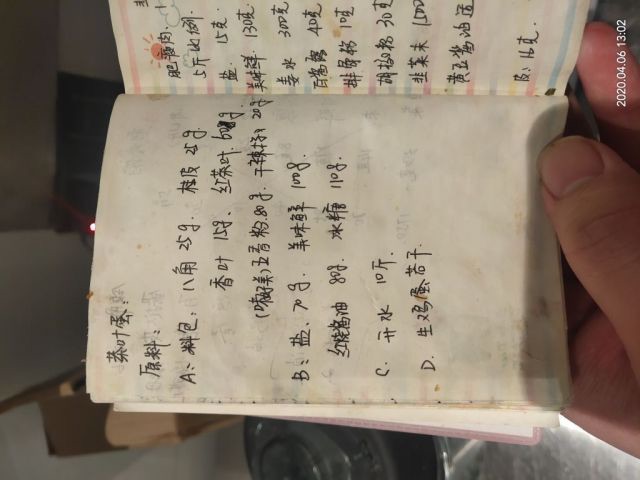 茶叶蛋:
原料:
A: 料包: 八角 25g. 桂皮 25g.
香叶 15g、 红茶叶. 60g
(味好美)五香粉80g. 干辣椒 20g
B: 盐、70g. 美味鲜 100g.
红烧酱油 80g. 冰糖 110g.
C. 开水 10斤.
D. 生鸡蛋若干.
肥瘦肉
5斤比例
盐. 15克
美味鲜 130克
姜水 300克
40克
排骨粉 10克
胡椒粉 30克
韭菜末
黄豆酱油适
2020.04.06 13:02